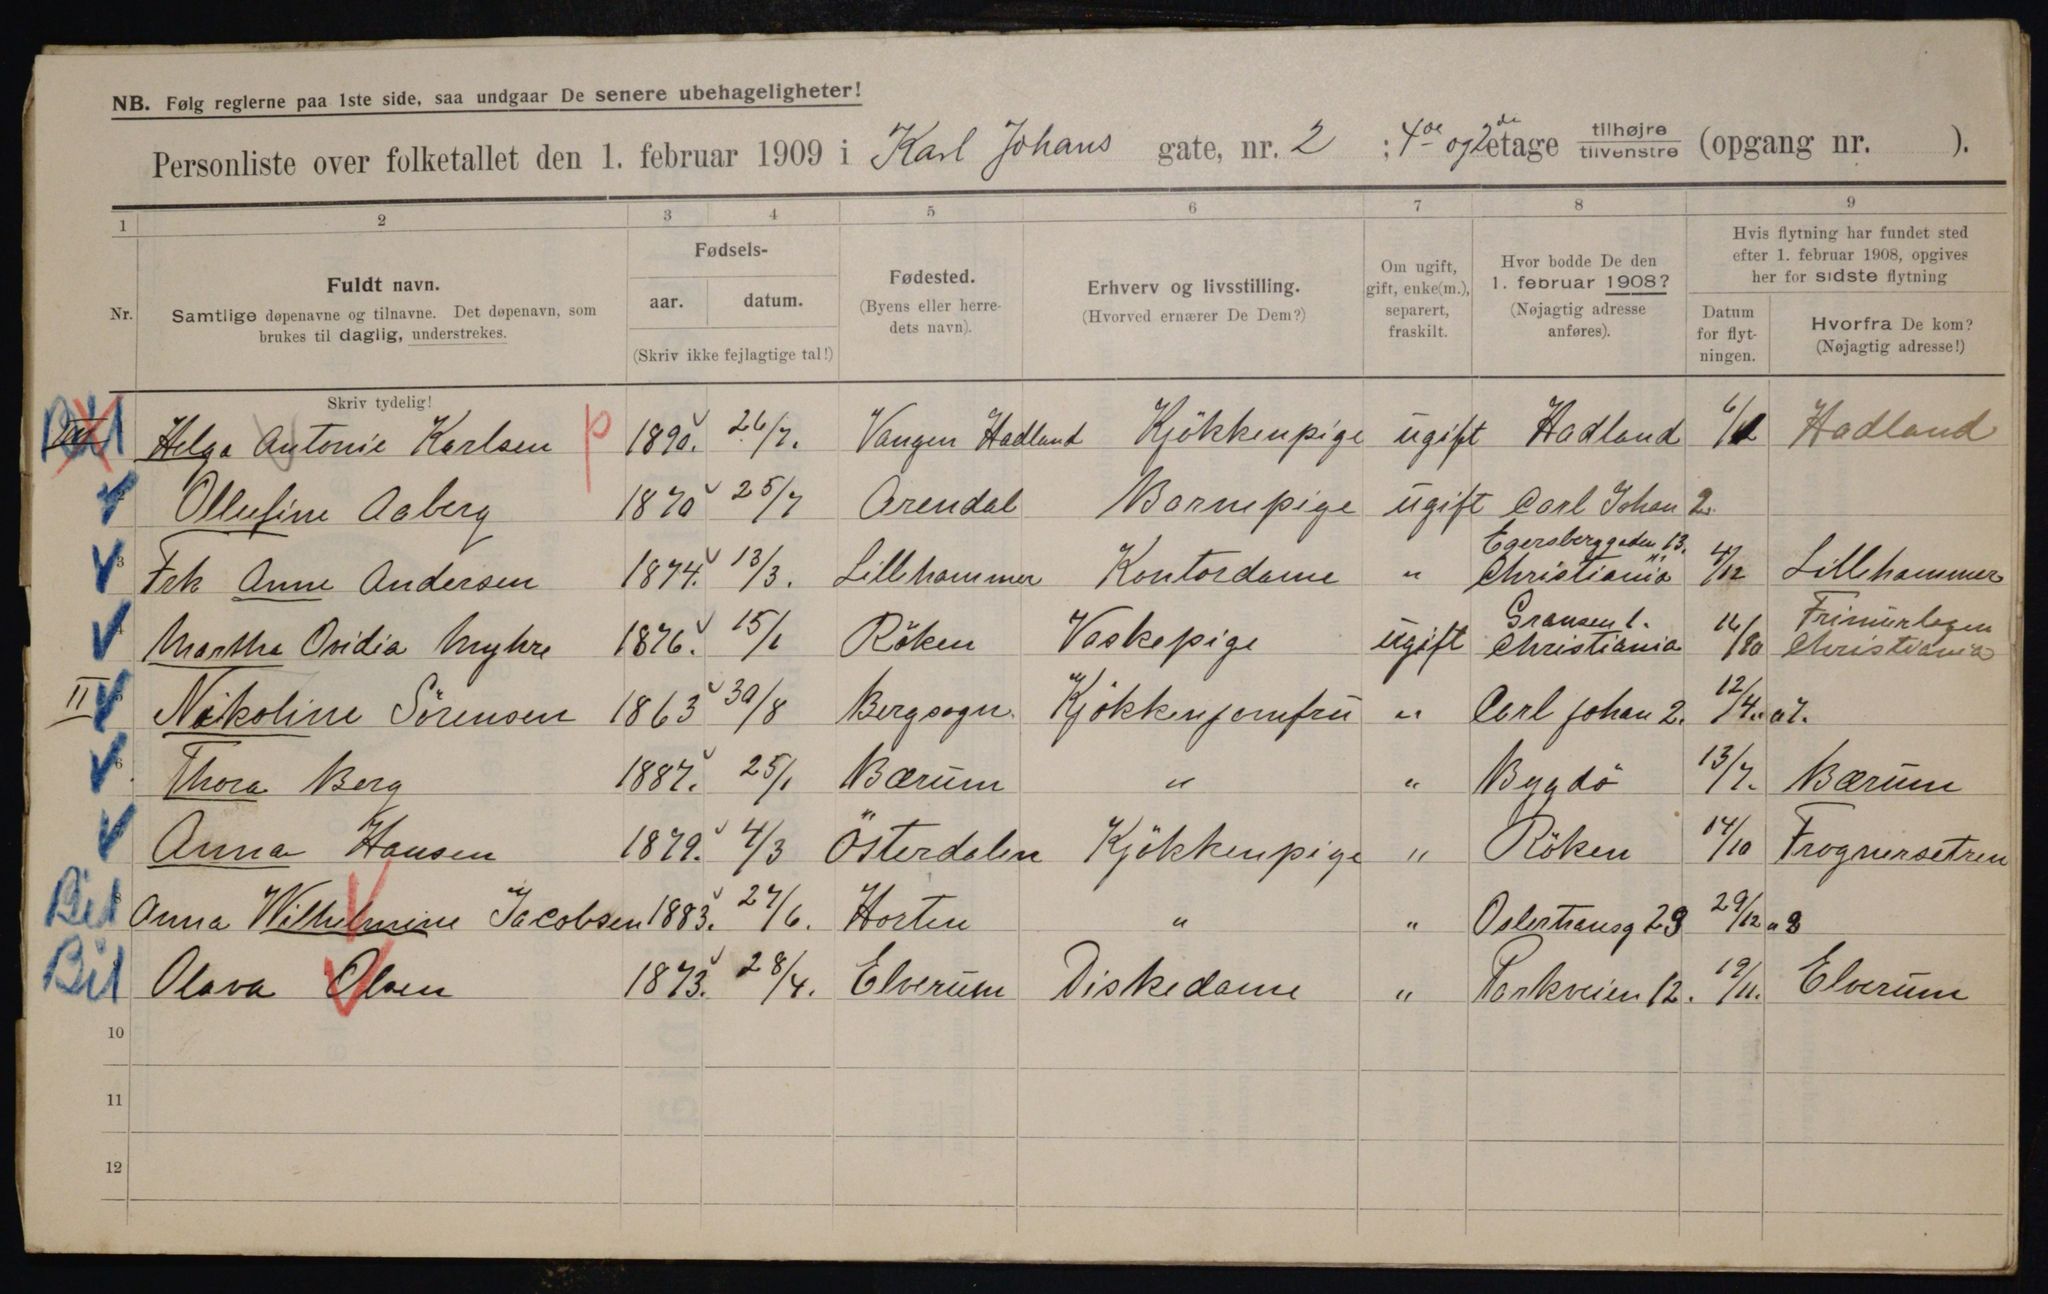 NB. Følg reglerne paa 1ste side, saa undgaar De senere ubehageligheter!
Personliste over folketallet den 1. februar 1909 i Karl Johans gate, nr. 2 ; 4de og 2de etage tilhøjre/tilvenstre (opgang nr. ).
1 2 3 4 5 6 7 8 9
Nr.
Fuldt navn.
Samtlige døpenavne og tilnavne. Det døpenavn, som
brukes til daglig, understrekes.
Skriv tydelig!
Fødsels-
aar. datum.
(Skriv ikke fejlagtige tal!)
Fødested.
(Byens eller herre-
dets navn).
Erhverv og livsstilling.
(Hvorved ernærer De Dem?)
Om ugift,
gift, enke(m.),
separert,
fraskilt.
Hvor bodde De den
1. februar 1908?
(Nøjagtig adresse
anføres).
Hvis flytning har fundet sted
efter 1. februar 1908, opgives
her for sidste flytning
Datum
for flyt-
ningen.
Hvorfra De kom?
(Nøjagtig adresse!)
Helga Antonie Karlsen p 1890. 26/7. Vangen Hadland Kjökkenpige ugift Hadland Hadland
Ollufine Aaberg 1870 25/7 Arendal Barnepige ugift Carl Johan 2.
3 Frk Anne Andersen 1874. 13/3. Lillehammer Kontordame " Egersberggaden 13. Christiania 4/12 Lillehammer
4 Martha Ovidia Myhre 1876. 15/1 Röken Vaskepige ugift Gransen 1. Christiania Frimurlogen Christiania
II Nikoline Sörensen 1863 30/8 Bergsogn. Kjökkenjomfru " Carl Johan 2. 12/4.
6 Thora Berg 1887. 25/1 Bærum " " Bygdö 13/7. Bærum
Anna Hansen 1879. 4/3 Österdalen Kjökkenpige " Röken 14/10 Frognersetren
Bil Anna Wilhelmine Jacobsen 1883. 27/6. Horten " " 29/12
Bil Olava Olsen 1873. 28/4. Elverum Diskedame " Parkveien 12. 19/11. Elverum
10
11
12